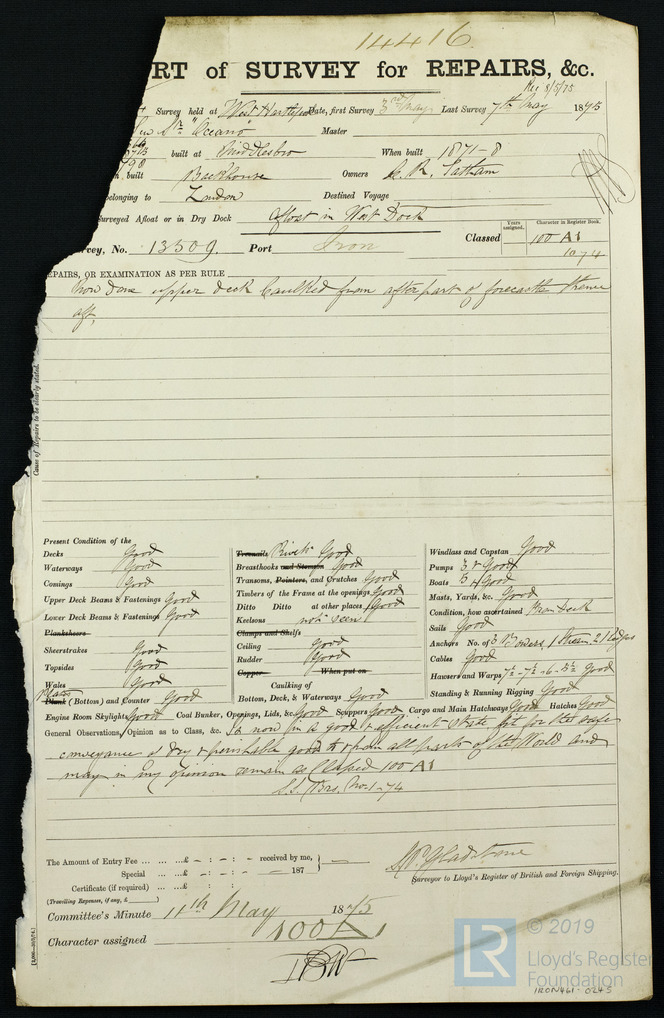 14416
RT of SURVEY for REPAIRS, &c.
Rec 8/5/75
Survey held at West Hartlepool Date, first Survey 3rd May Last Survey 7th May 1875
Sr "Oceano" Master
built at Middlesbro When built 1871-8
built Backhouse Owners R. Tatham
elonging to London Destined Voyage
urveyed Afloat or in Dry Dock Afloat in West Dock
Years assigned. Character in Register Book.
rvey, No. 13509. Port Iron Classed 100 A1
10 74
EPAIRS, OR EXAMINATION AS PER RULE
Now done upper deck caulked from after part of forecastle thence
aft.
Cause of Repairs to be clearly stated.
Present Condition of the
Decks Good
Waterways Good
Comings Good
Upper Deck Beams & Fastenings Good
Lower Deck Beams & Fastenings Good
Planksheers
Sheerstrakes Good
Topsides Good
Wales Good
Plates
Plank (Bottom) and Counter Good
Treenails Rivets Good
Breasthooks and Stemson Good
Transoms, Pointers, and Crutches Good
Timbers of the Frame at the openings Good
Ditto Ditto at other places Good
Keelsons not seen
Clamps and Shelfs
Ceiling Good
Rudder Good
Copper When put on
Caulking of
Bottom, Deck, & Waterways Good
Windlass and Capstan Good
Pumps 3 & Good
Boats 5 & Good
Masts, Yards, &c. Good
Condition, how ascertained from Deck
Sails Good
Anchors No. of 3 Bowers, 1 Stream, 2 Kedges
Cables Good
Hawsers and Warps 7½ - 7½ - 6 - 5½ Good
Standing & Running Rigging Good
Engine Room Skylights Good Coal Bunker, Openings, Lids, &c. Good Scuppers Good Cargo and Main Hatchways Good Hatches Good
General Observations, Opinion as to Class, &c. Is now in a good & efficient state fit for the safe
conveyance of dry & perishable goods to & from all parts of the World and
may in my opinion remain as Classed 100 A1
S.S. No. 1 - 74
The Amount of Entry Fee ... ... ...£ - : - : - received by me,
Special ... ...£ - : - : - 187
Certificate (if required) ... ...£ : :
(Travelling Expenses, if any, £ )
Committee's Minute 11th May 1875
Character assigned 100 A1
Gladstone
Surveyor to Lloyd's Register of British and Foreign Shipping.
LR
© 2019
Lloyd's Register
Foundation
IRON461-0245